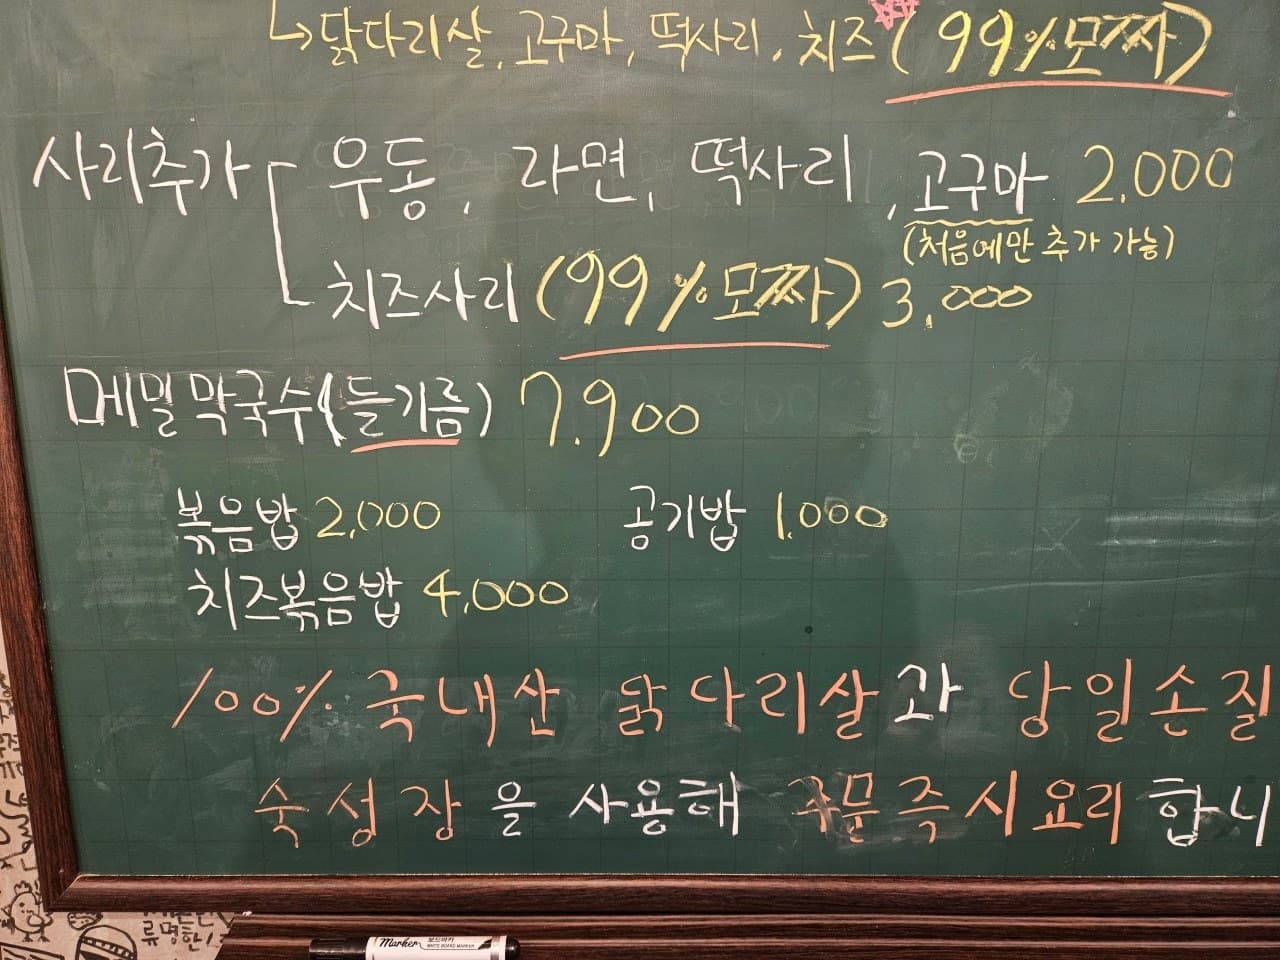 ↳닭다리살, 고구마, 떡사리, 치즈 (99% 모짜)
사리추가 우동, 라면, 떡사리, 고구마 2,000
(처음에만 추가 가능)
치즈사리 (99% 모짜) 3,000
메밀막국수(들기름) 7.900
볶음밥 2,000 공기밥 1.000
치즈볶음밥 4,000
100% 국내산 닭다리살과 당일손질
숙성장을 사용해 주문즉시요리합니
Marker 보드마카
WHITE BOARD MARKER